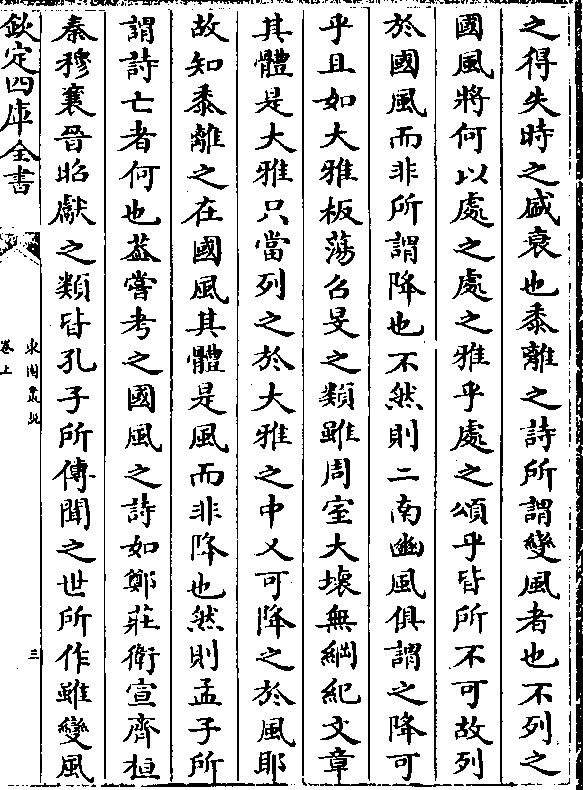 之得失時之盛衰也黍離之詩所謂變風者也不列之
國風將何以處之處之雅乎處之頌乎皆所不可故列
於國風而非所謂降也不然則二南豳風俱謂之降可
乎且如大雅板蕩召旻之類雖周室大壞無綱紀文章
其體是大雅只當列之於大雅之中又可降之於風耶
故知黍離之在國風其體是風而非降也然則孟子所
謂詩亡者何也葢嘗考之國風之詩如鄭莊衛宣齊桓
秦穆襄晉昭獻之類皆孔子所傳聞之世所作雖變風
欽定四庫全書
東園叢說
卷上
三